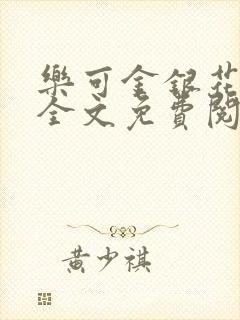 樂可金銀花
全文免費閱
黃少祺